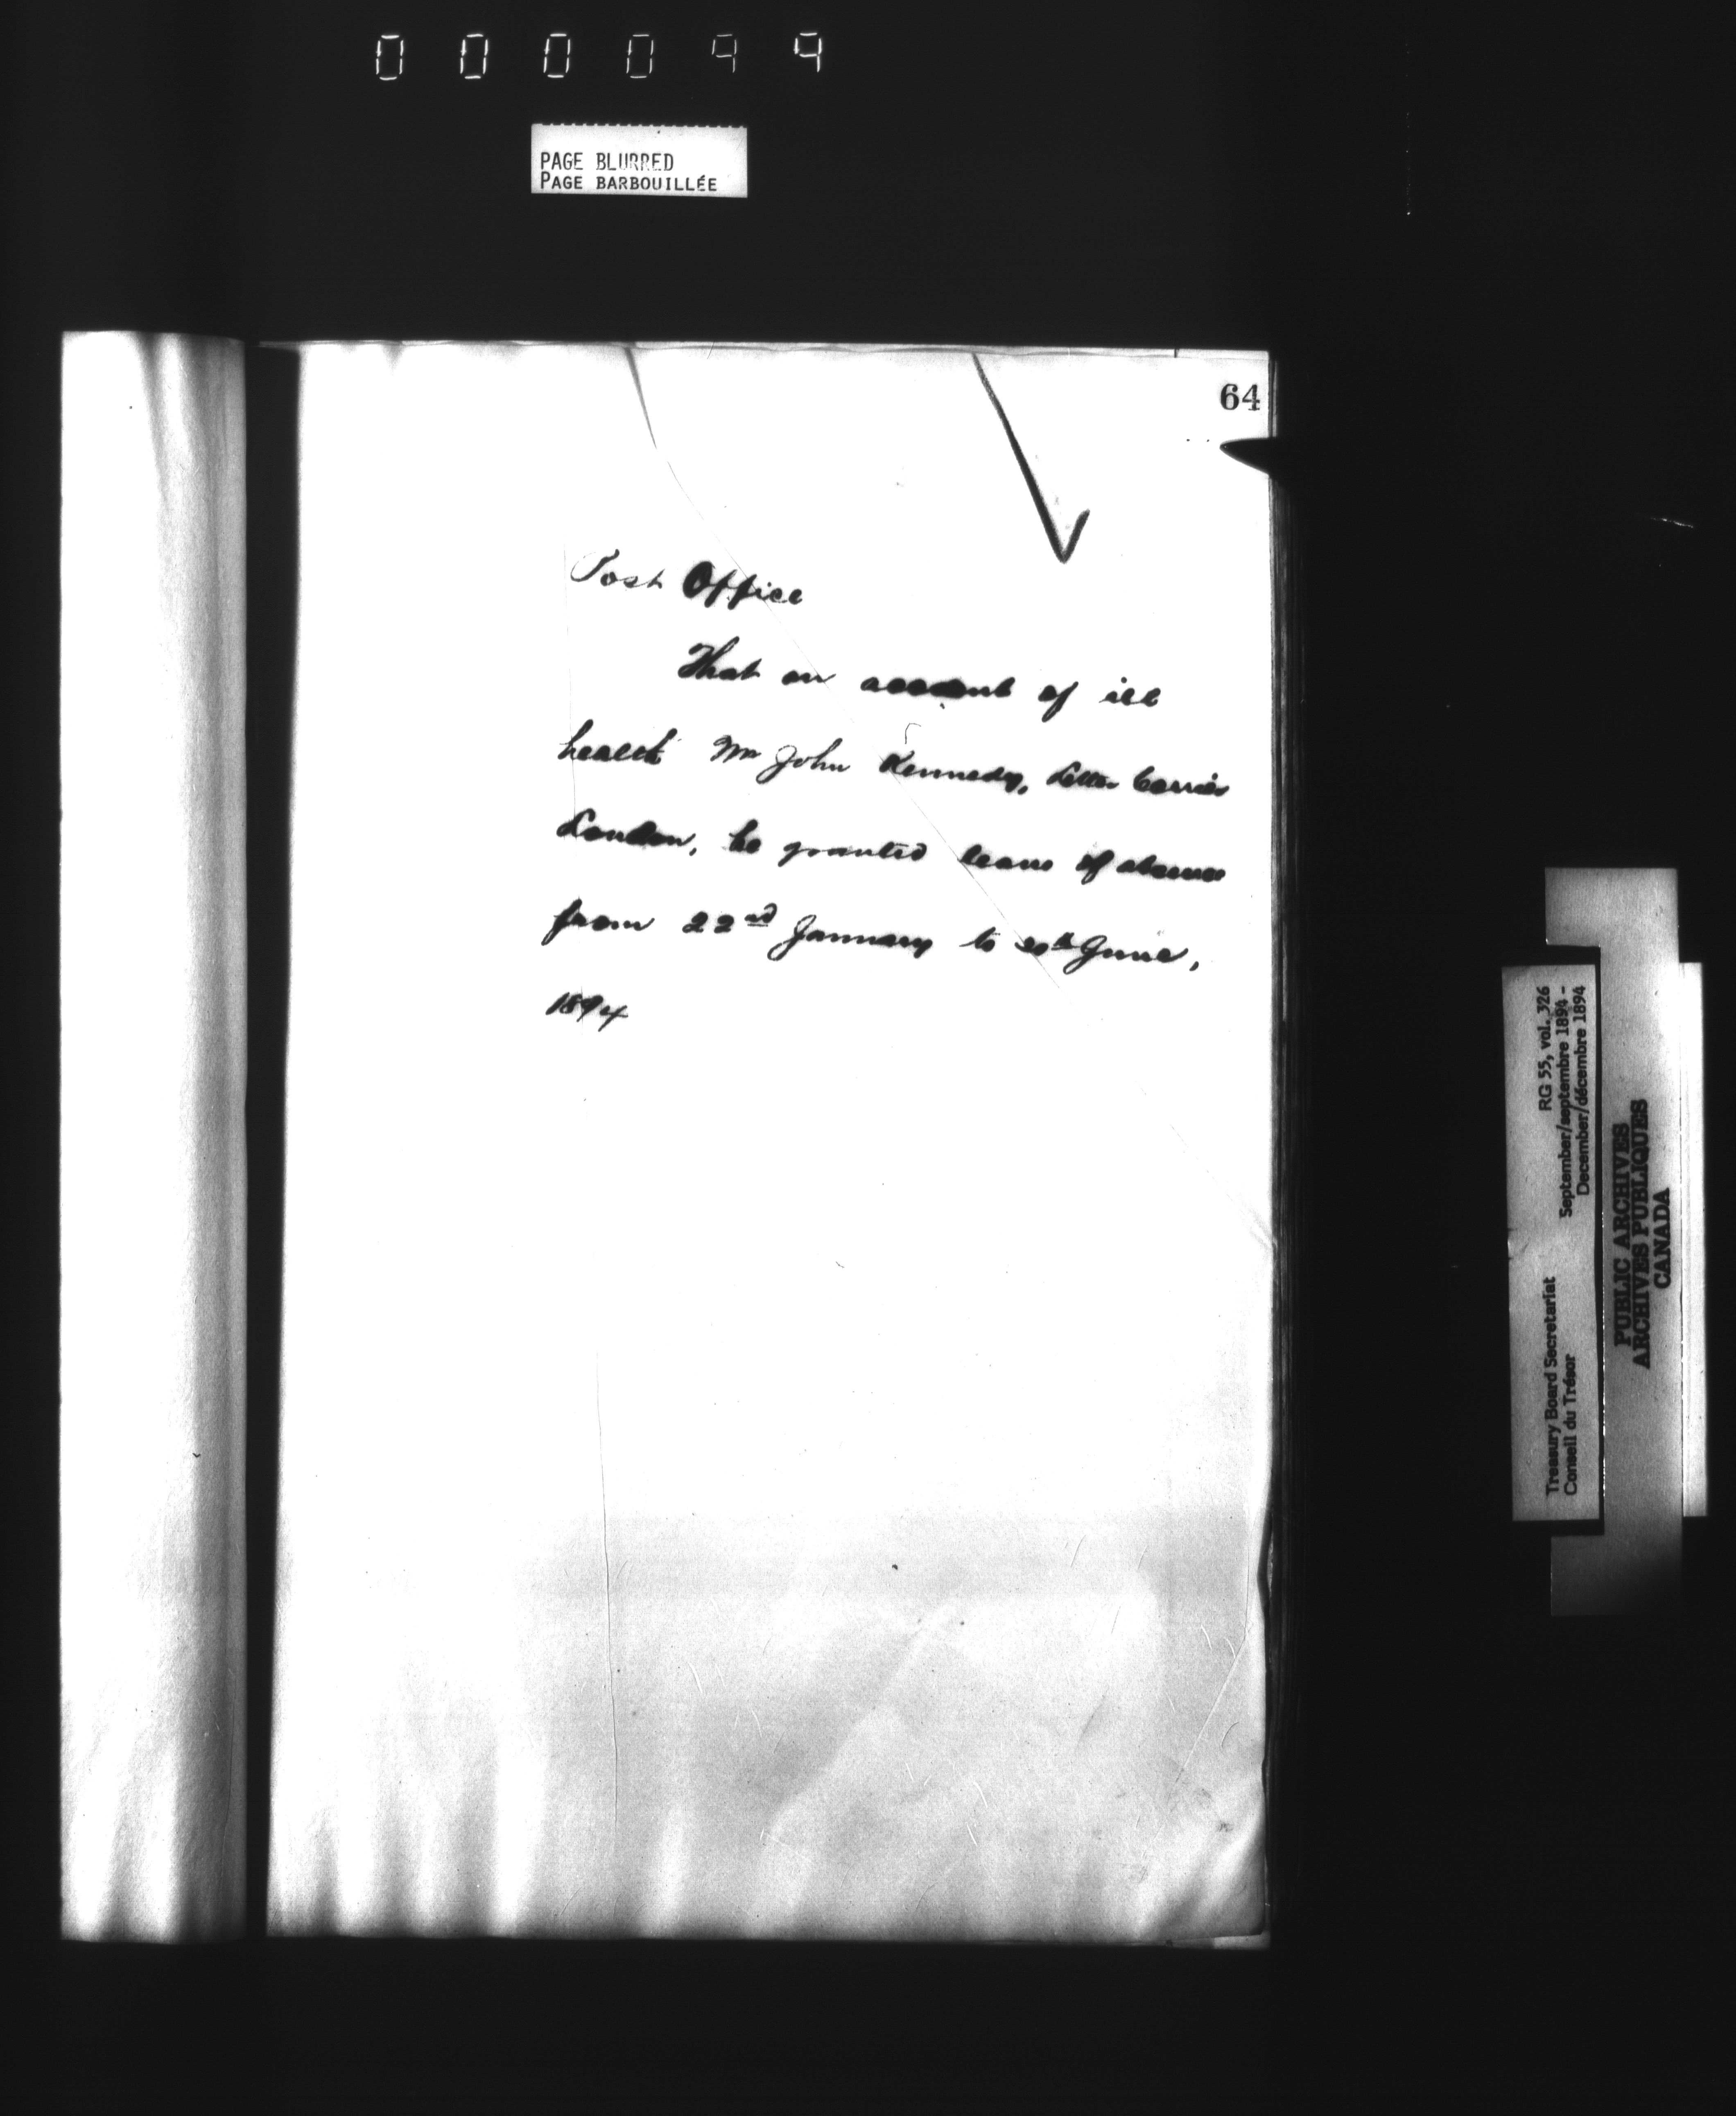 000099
PAGE BLURRED
PAGE BARBOUILLÉE
64
Post Office
That on account of ill
health Mr John Kennedy, Letter Carrier
London, be granted leave of absence
from 22nd January to June,
1894
RG 55, vol. 326
September/septembre 1894 -
December/décembre 1894
Treasury Board Secretariat
Conseil du Trésor
PUBLIC ARCHIVES
ARCHIVES PUBLIQUES
CANADA